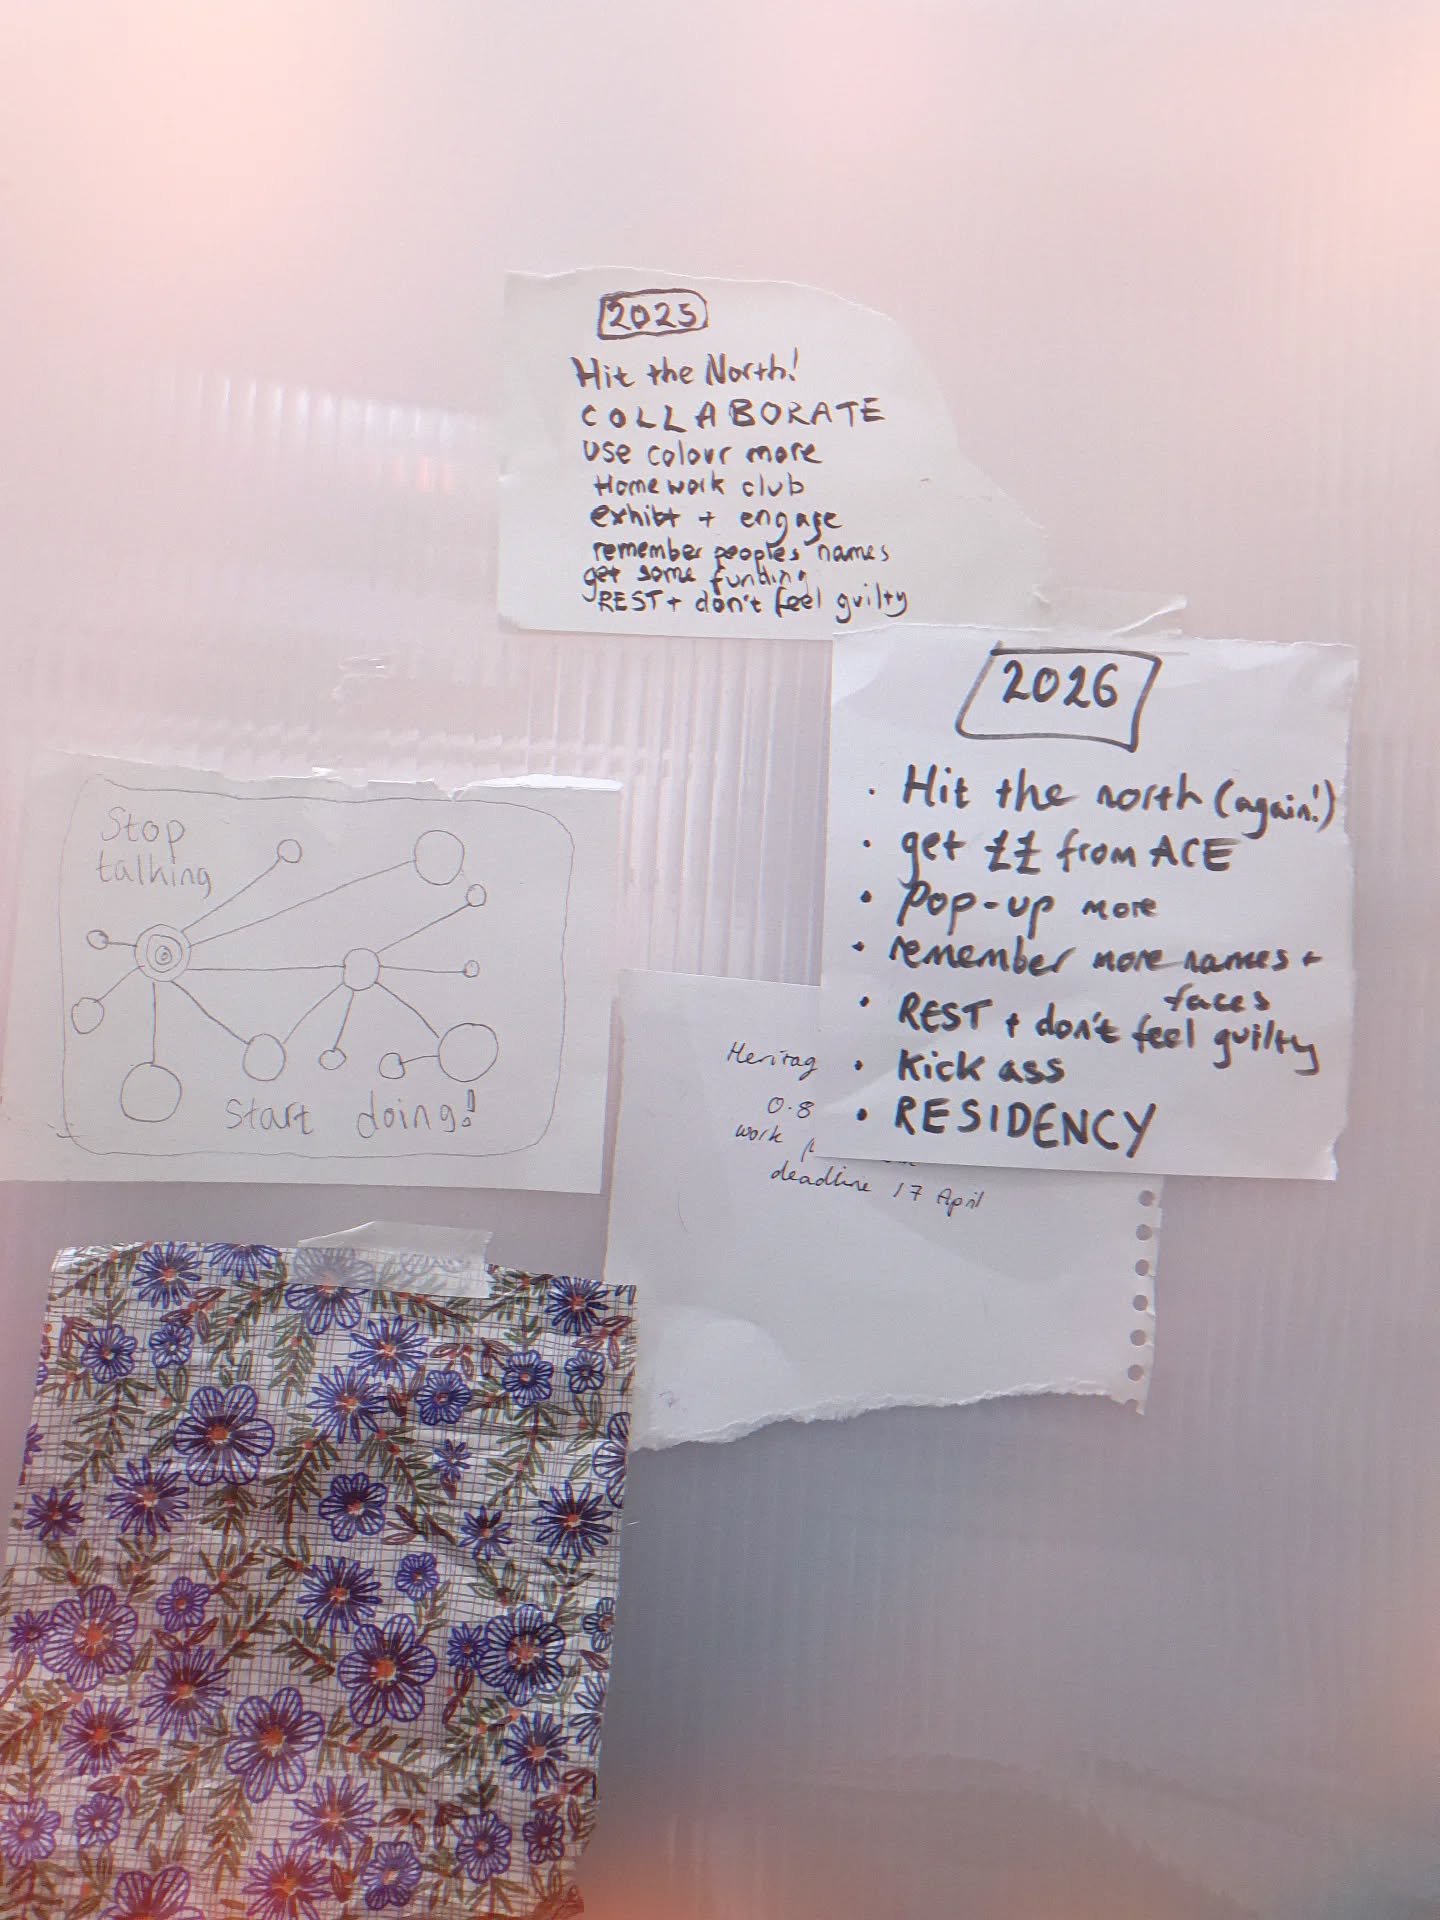 2025
Hit the North!
COLLABORATE
use colour more
Homework club
exhibt + engage
remember peoples names
get some funding
REST + don't feel guilty
2026
· Hit the north (again!)
· get ££ from ACE
· Pop-up more
· remember more names +
faces
· REST + don't feel guilty
· Kick ass
· RESIDENCY
Stop
talking
start doing!
Heritag
0.8
work
deadline 17 April